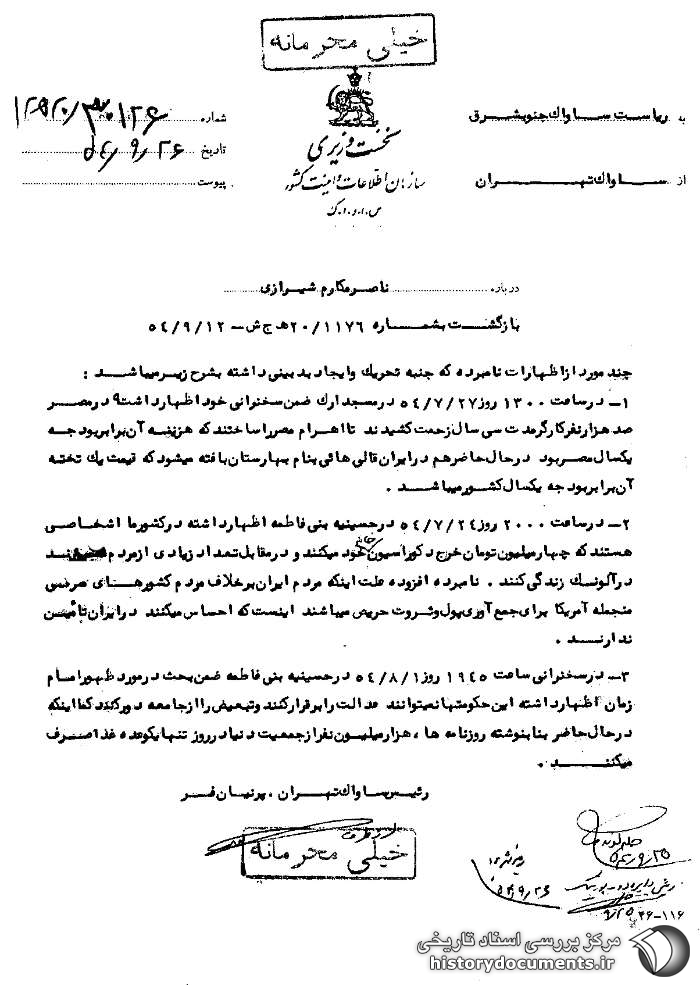 خیلی محرمانه
به ریاست ساواک جنوبشرق
از ساواک تهران
نخست وزیری
سازمان اطلاعات و امنیت کشور
س.ا.و.ا.ک
شماره ۱۲۹۲۰/۳۰۱۲۶
تاریخ ۵۴/۹/۲۶
پیوست
درباره ناصر مکارم شیرازی
بازگشت بشماره ۲۰/۱۱۷۶ هـ ج ش - ۵۴/۹/۱۲
چند مورد از اظهارات نامبرده که جنبه تحریک و ایجاد بدبینی داشته بشرح زیر میباشد :
۱- در ساعت ۱۳۰۰ روز ۵۴/۷/۲۷ در مسجد ارک ضمن سخنرانی خود اظهار داشت در مصر
صد هزار نفر کارگر مدت سی سال زحمت کشیدند تا اهرام مصر را ساختند که هزینه آن برابر بودجه
یکسال مصر بود در حال حاضر هم در ایران قالی هائی بنام بهارستان بافته میشود که قیمت یک تخته
آن برابر بودجه یکسال کشور میباشد .
۲- در ساعت ۲۰۰۰ روز ۵۴/۷/۲۴ در حسینیه بنی فاطمه اظهار داشته در کشور ما اشخاصی
هستند که چهار میلیون تومان خرج دکوراسیون خانه خود میکنند و در مقابل تعداد زیادی از مردم
در آلونک زندگی کنند . نامبرده افزوده علت اینکه مردم ایران برخلاف مردم کشورهای غربی
منجمله آمریکا برای جمع آوری پول و ثروت حریص میباشند اینست که احساس میکنند در ایران تأمین
ندارند .
۳- در سخنرانی ساعت ۱۹۴۵ روز ۵۴/۸/۱ در حسینیه بنی فاطمه ضمن بحث در مورد ظهور امام
زمان اظهار داشته این حکومتها نمیتوانند عدالت را برقرار کنند و تبعیض را از جامعه دور کنند کما اینکه
در حال حاضر بنا بنوشته روزنامه ها ، هزار میلیون نفر از جمعیت دنیا در روز تنها یکوعده غذا صرف
میکنند .
رئیس ساواک تهران . پرنیان فر
از طرف
خیلی محرمانه
۵۴/۹/۲۵
۵۴/۹/۲۶
۹/۲۵
۲۶-۱۱۶
مرکز بررسی اسناد تاریخی
historydocuments.ir